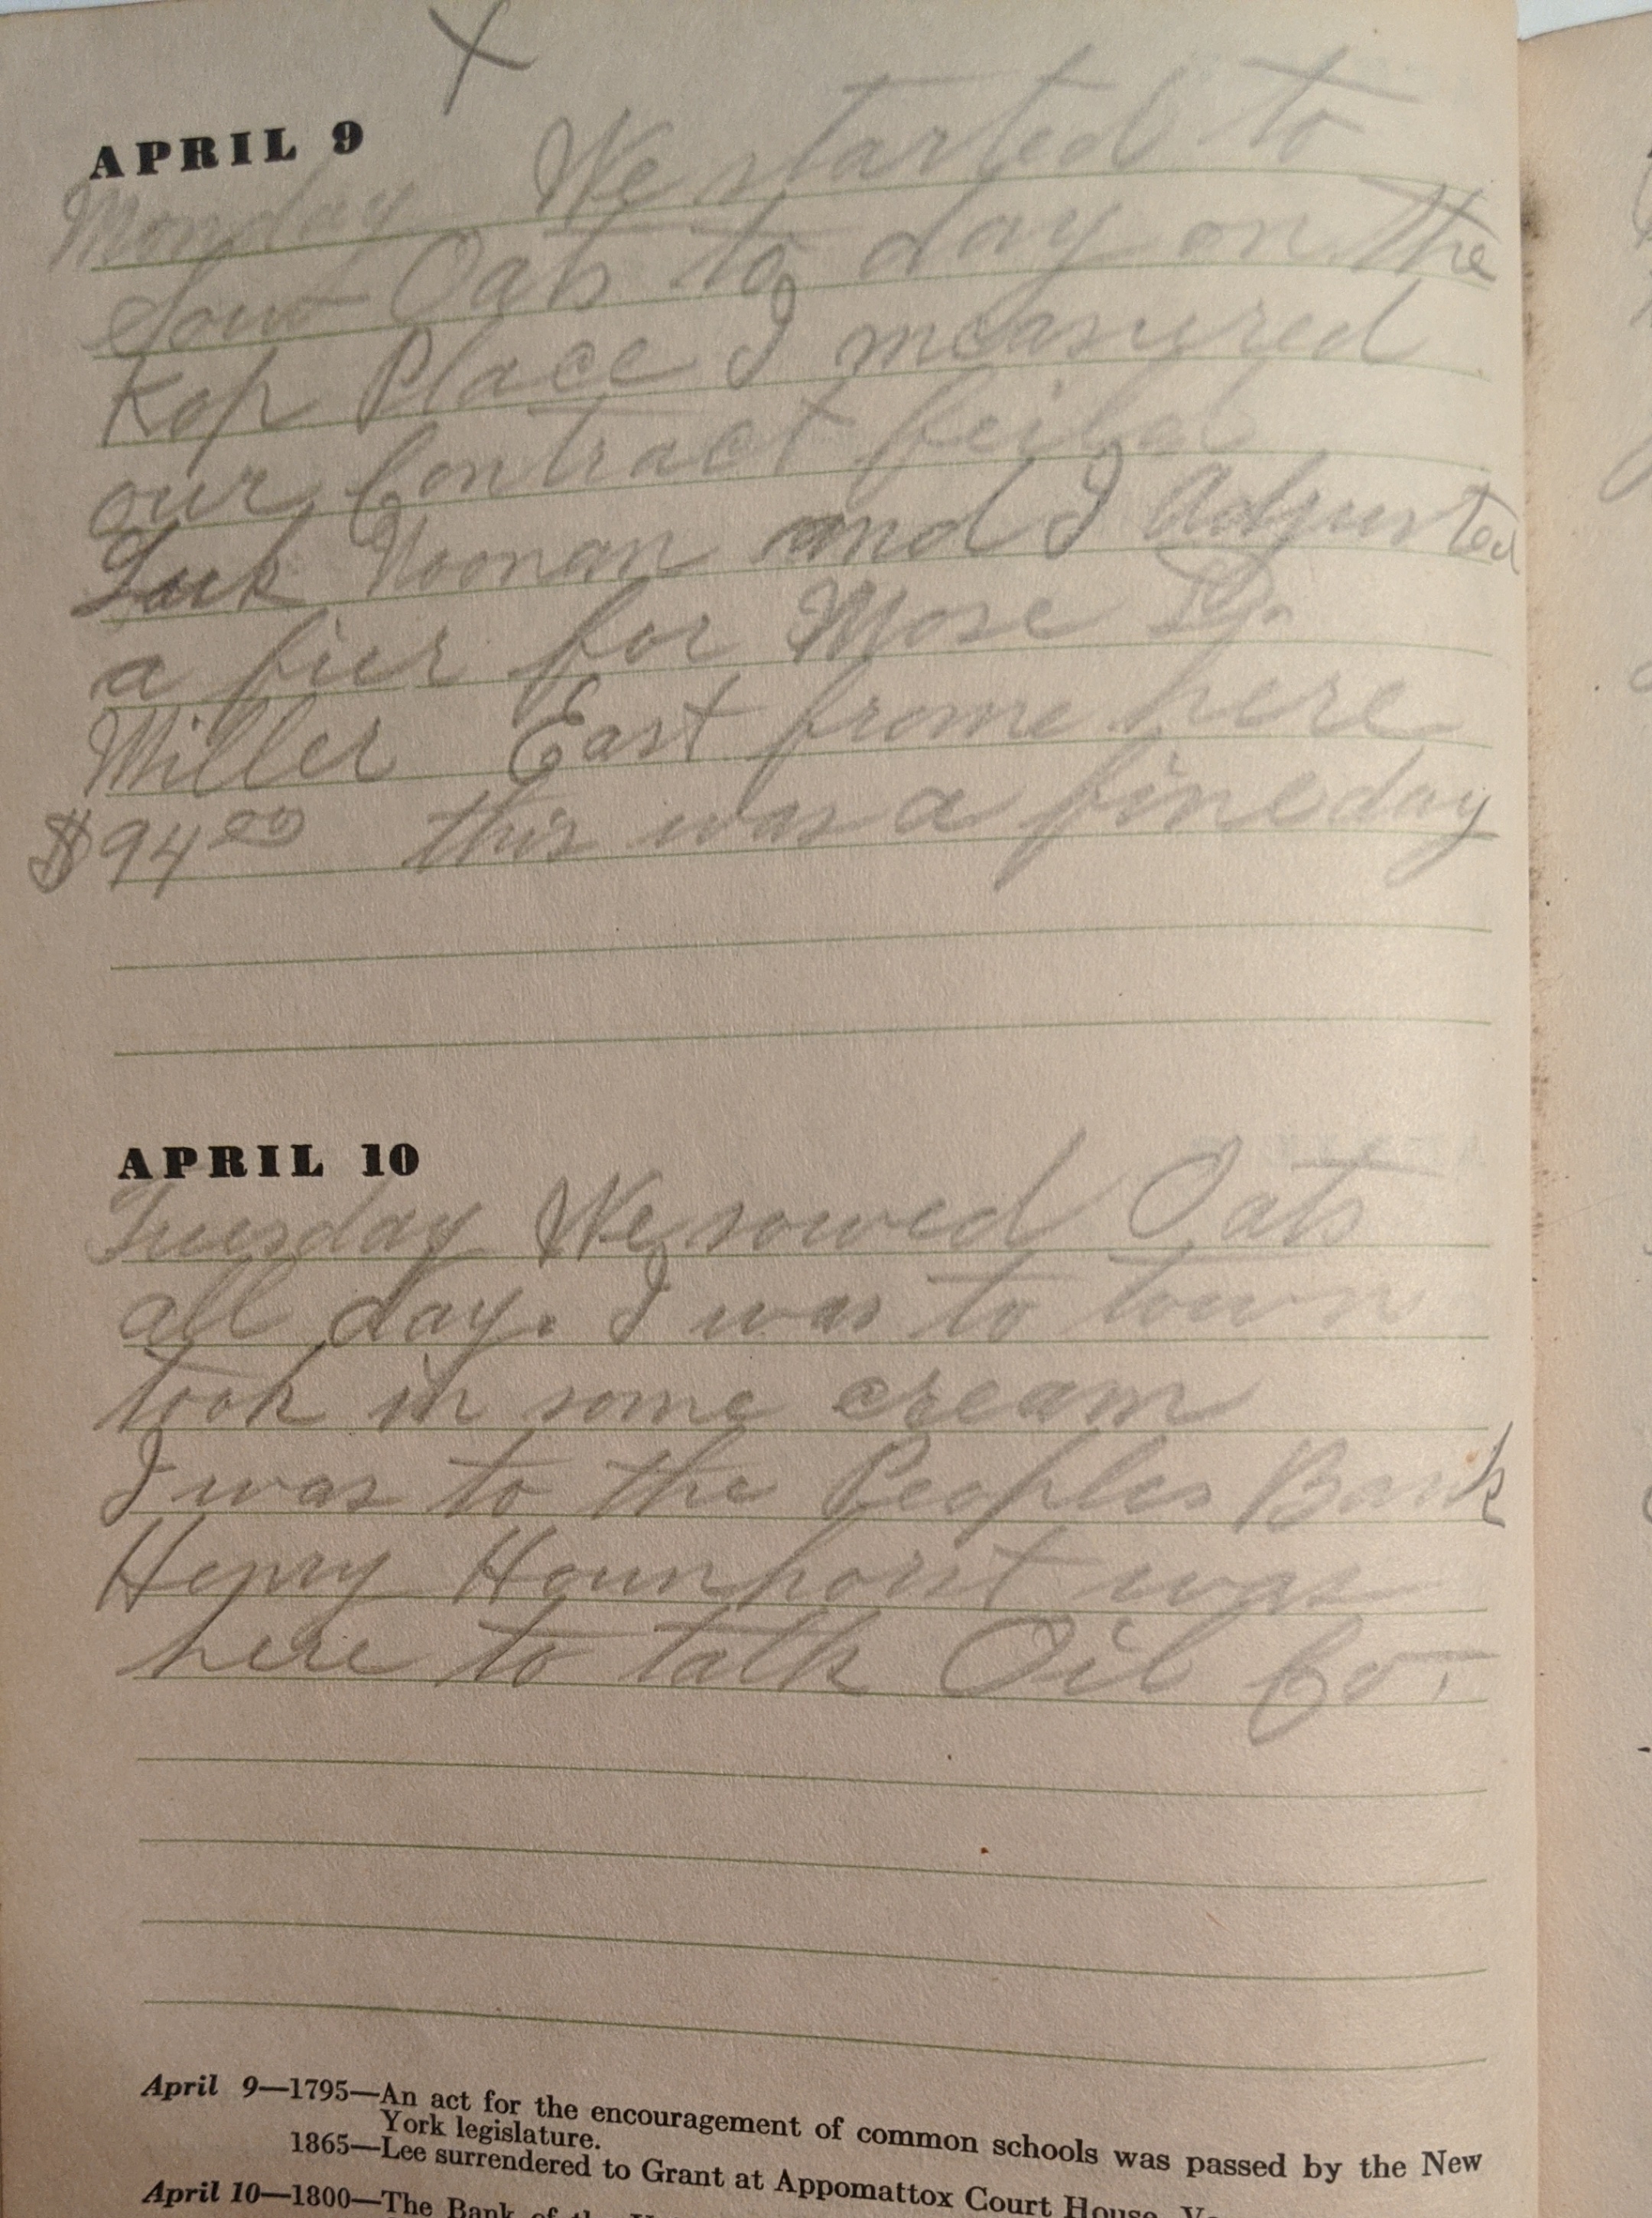 X
APRIL 9
Monday We started to
sow Oats to day on the
Kop Place I measured
our Contract feild
Noonan and I Adjusted
a fier for Mose D.
Miller East frome here
$94 00 this was a fine day
APRIL 10
Tuesday We sowed Oats
all day. I was to town
took in some cream
I was to the Peoples Bank
Henry was
here to talk Oil Co.
April 9—1795—An act for the encouragement of common schools was passed by the New
York legislature.
1865—Lee surrendered to Grant at Appomattox Court House,
April 10—1800—The Bank of the